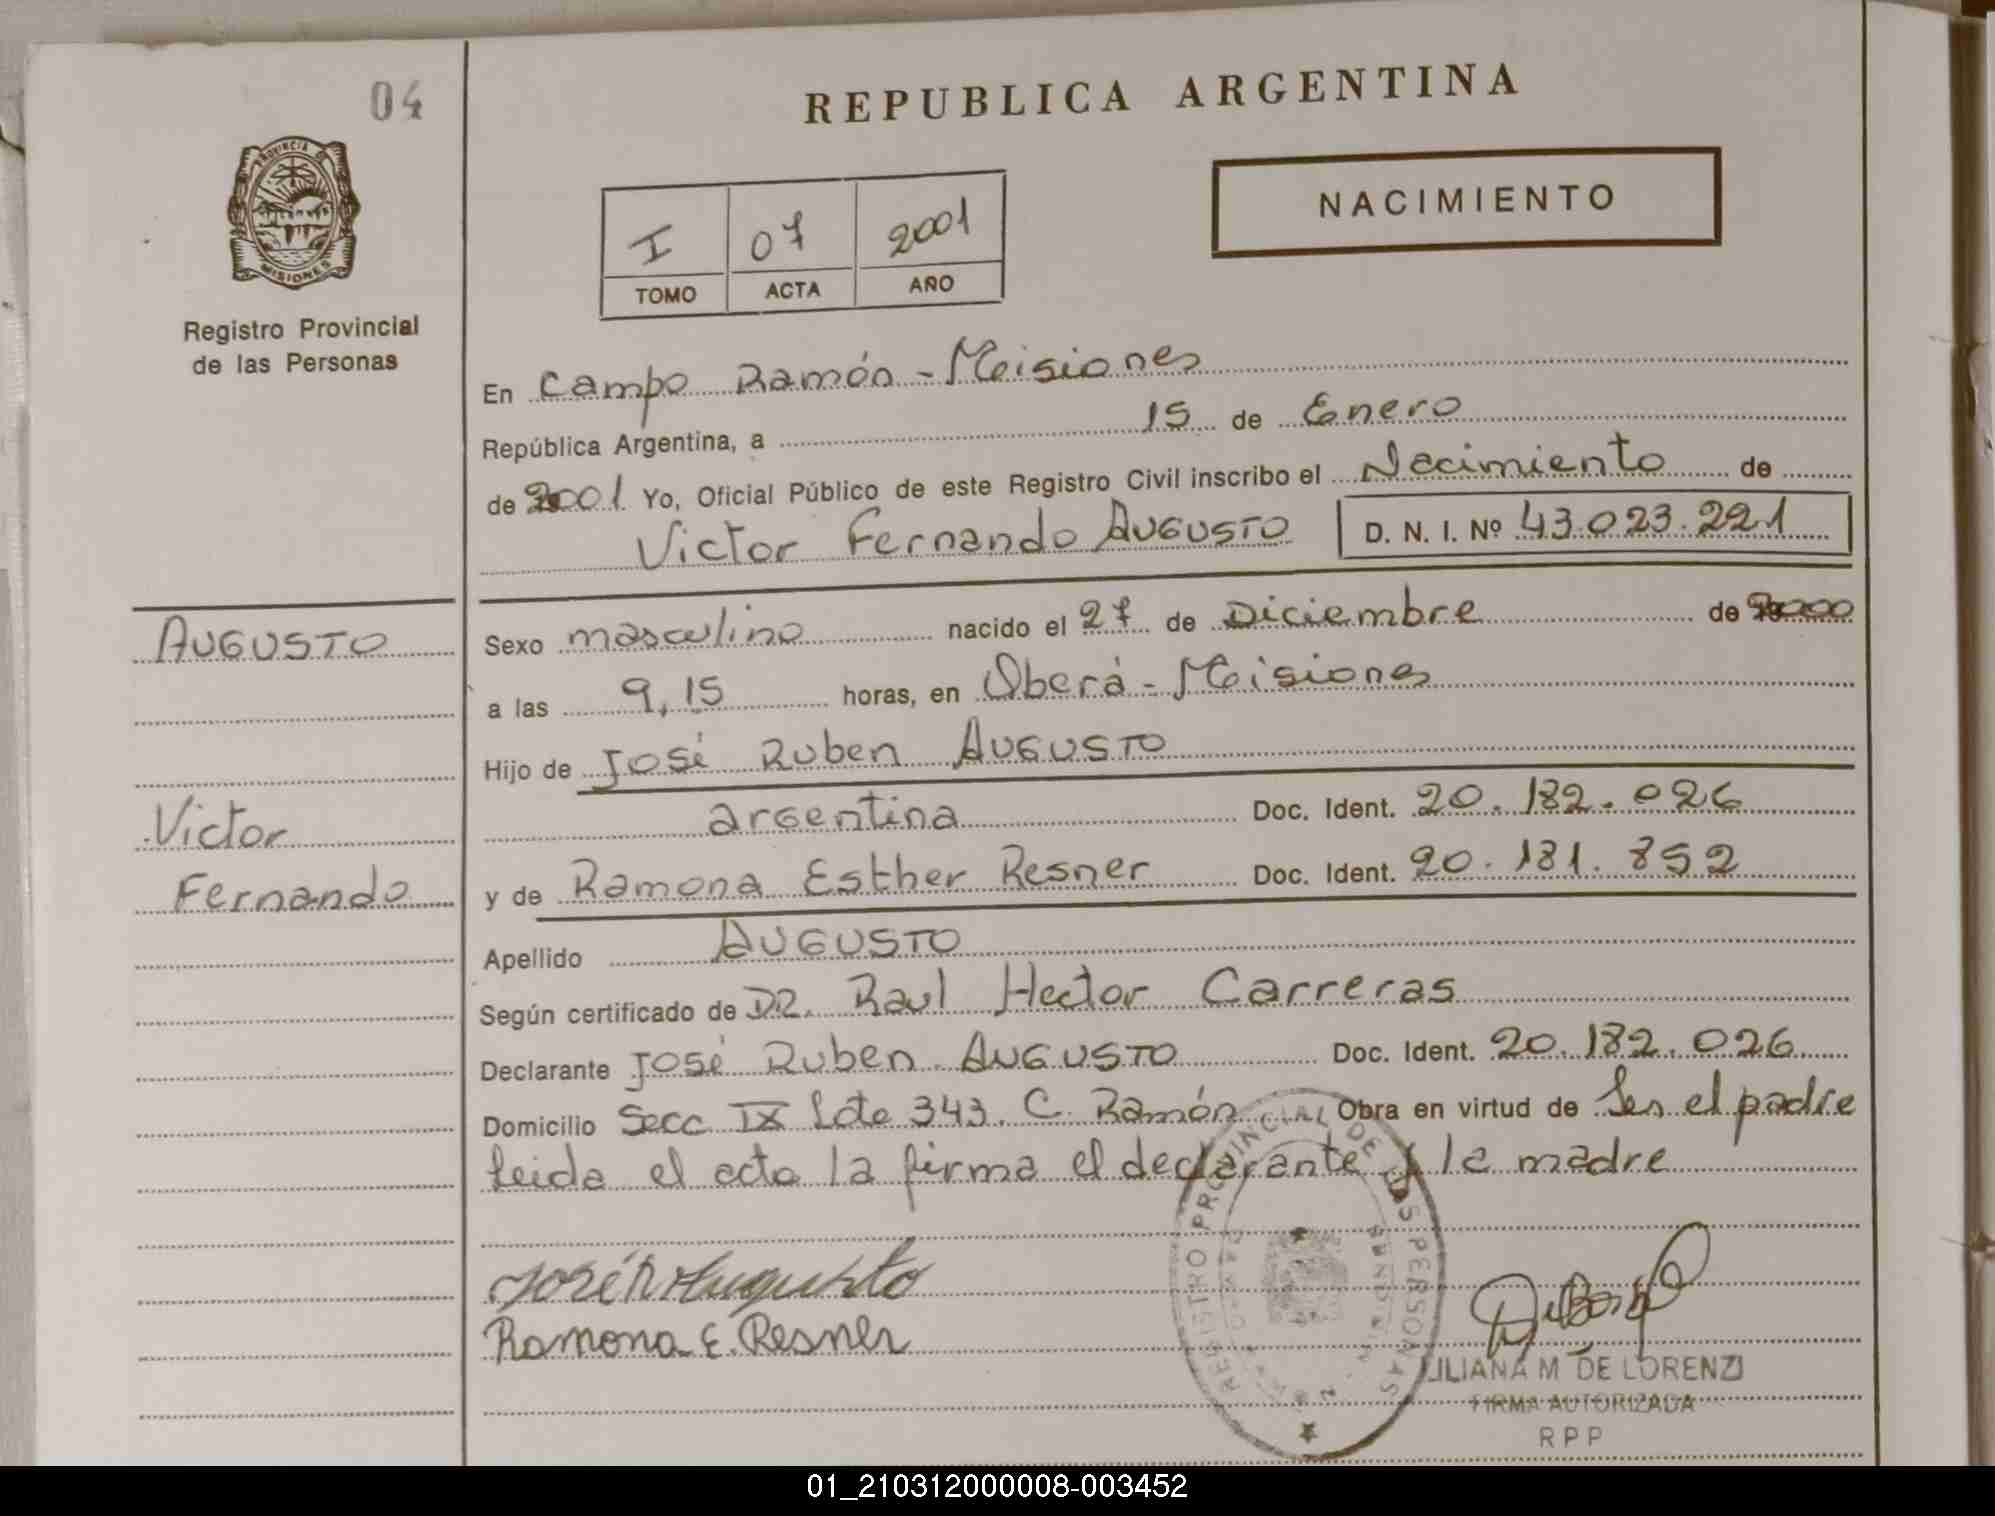 04
REPUBLICA ARGENTINA
PROVINCIA DE
MISIONES
Registro Provincial
de las Personas
NACIMIENTO
I 07 2001
TOMO ACTA AÑO
En Campo Ramón - Misiones
República Argentina, a 15 de Enero
de 2001 Yo, Oficial Público de este Registro Civil inscribo el Nacimiento de
Victor Fernando AUGUSTO D. N. I. Nº 43.023.221
AUGUSTO
Victor
Fernando
Sexo masculino nacido el 27 de Diciembre de 2000
a las 9,15 horas, en Oberá - Misiones
Hijo de José Ruben AUGUSTO
argentina Doc. Ident. 20.182.026
y de Ramona Esther Resner Doc. Ident. 20.181.852
Apellido AUGUSTO
Según certificado de DR. Raul Hector Carreras
Declarante José Ruben AUGUSTO Doc. Ident. 20.182.026
Domicilio Secc IX Lote 343. C. Ramón Obra en virtud de Ser el padre
leida el acta la firma el declarante y la madre
José R Augusto
Ramona E. Resner
REGISTRO PROVINCIAL DE LAS PERSONAS
LILIANA M DE LORENZI
FIRMA AUTORIZADA
RPP
01_210312000008-003452